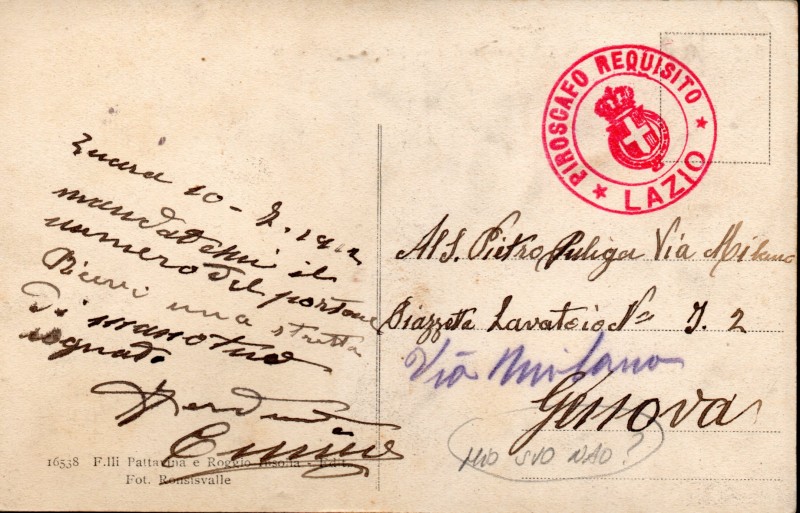 PIROSCAFO REQUISITO
LAZIO
Zuara 10 - 1912
mandatemi il
numero del portone
Ricevi una stretta
Di mano tuo
cognato
Al S. Pietro Puliga Via Milano
Piazzetta Lavatoio No 7. 2
Via Milano
Genova
MIO SUO NAO?
16538 F.lli Pattarina e Roggio Insolia - Edit.
Fot. Ronsisvalle